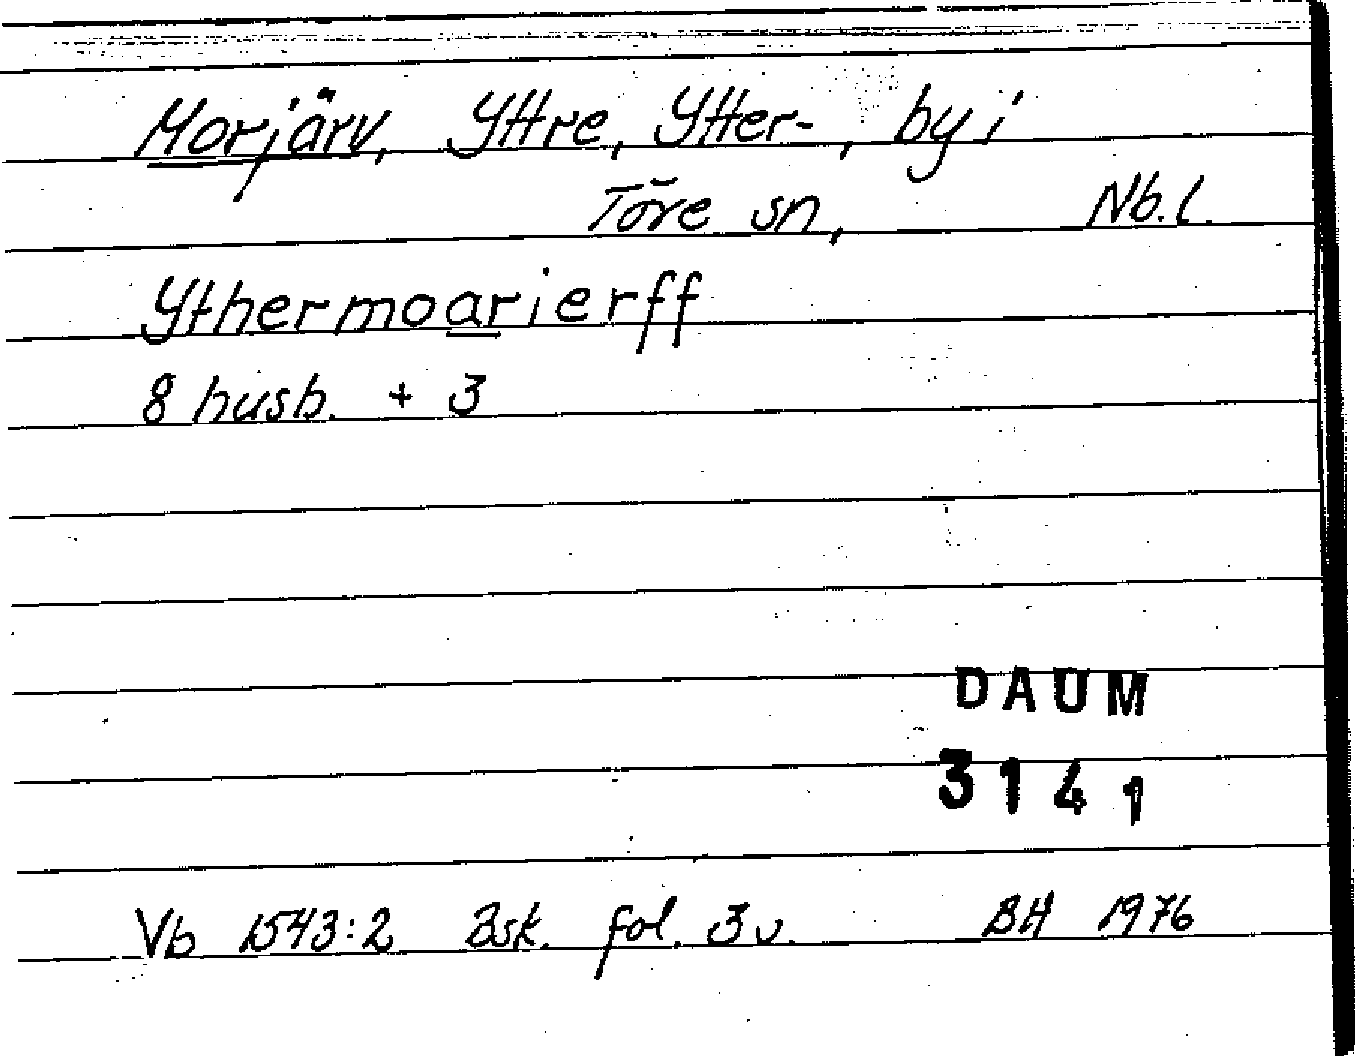 Morjärv, Yttre, Ytter-, by i
Töre sn, Nb.l.
Ythermoarierff
8 husb. + 3
DAUM
3141
Vb 1543:2 Bsk. fol. 3 v. BH 1976